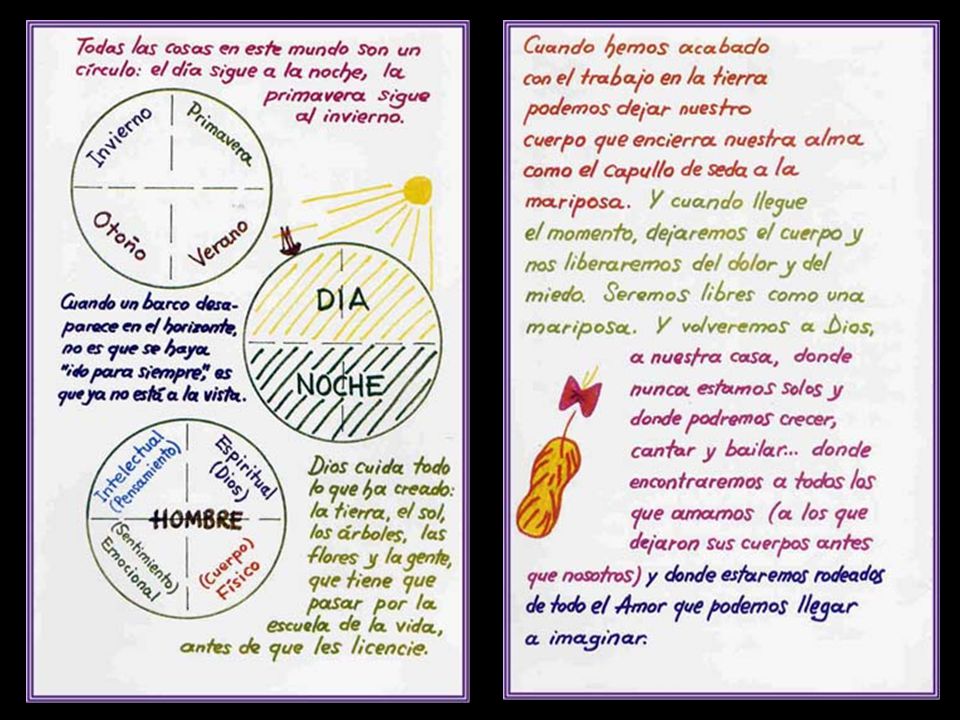 Todas las cosas en este mundo son un
círculo: el día sigue a la noche, la
primavera sigue
al invierno.
Invierno
Primavera
Otoño
Verano
DIA
NOCHE
Cuando un barco desa-
parece en el horizonte,
no es que se haya
"ido para siempre", es
que ya no está a la vista.
Intelectual
(Pensamiento)
Espiritual
(Dios)
HOMBRE
(Sentimiento)
Emocional
(Cuerpo)
Físico
Dios cuida todo
lo que ha creado:
la tierra, el sol,
los árboles, las
flores y la gente,
que tiene que
pasar por la
escuela de la vida,
antes de que les licencie.
Cuando hemos acabado
con el trabajo en la tierra
podemos dejar nuestro
cuerpo que encierra nuestra alma
como el capullo de seda a la
mariposa. Y cuando llegue
el momento, dejaremos el cuerpo y
nos liberaremos del dolor y del
miedo. Seremos libres como una
mariposa. Y volveremos a Dios,
a nuestra casa, donde
nunca estamos solos y
donde podremos crecer,
cantar y bailar... donde
encontraremos a todos los
que amamos (a los que
dejaron sus cuerpos antes
que nosotros) y donde estaremos rodeados
de todo el Amor que podemos llegar
a imaginar.